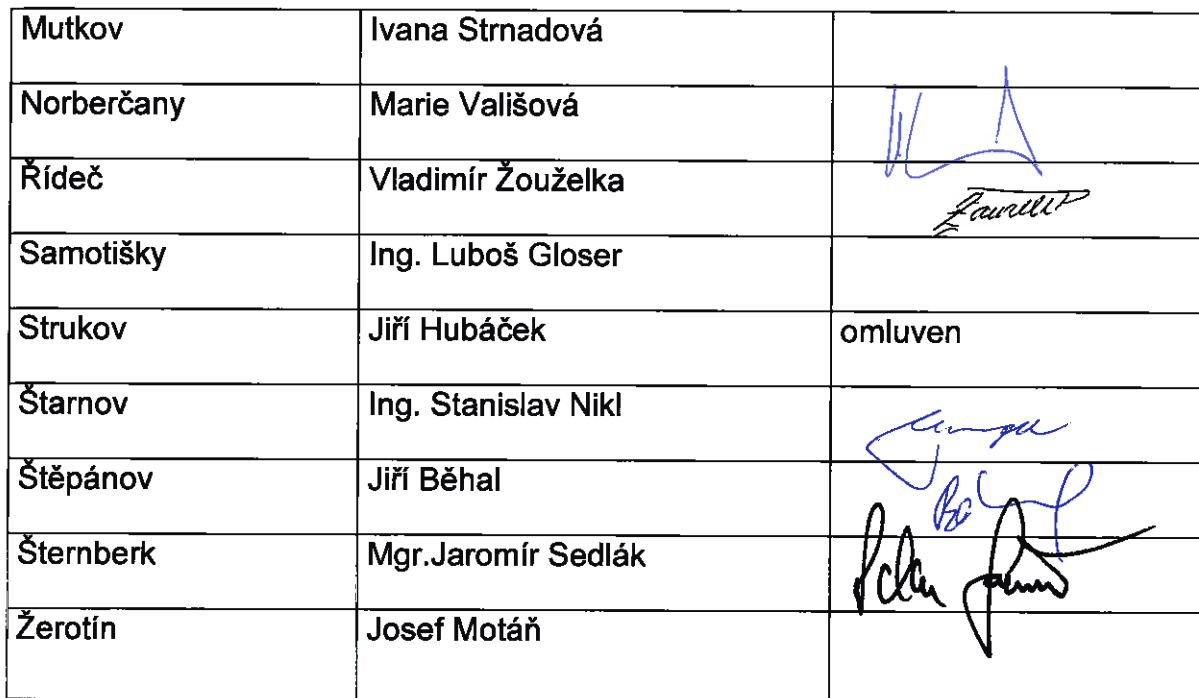 Mutkov Ivana Strnadová
Norberčany Marie Vališová
Řídeč Vladimír Žouželka
Samotišky Ing. Luboš Gloser
Strukov Jiří Hubáček omluven
Štarnov Ing. Stanislav Nikl
Štěpánov Jiří Běhal
Šternberk Mgr.Jaromír Sedlák
Žerotín Josef Motáň